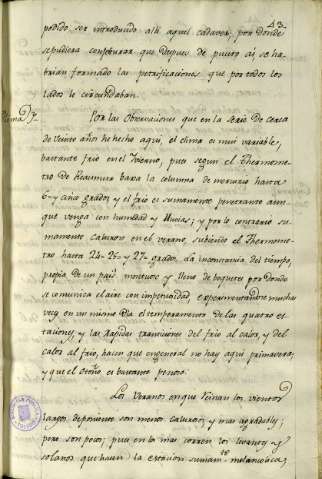 43
podido ser introducido alli aquel cadaver, por donde
se pudiera congeturar que despues de puesto ai, se ha-
brian formado las petrificaciones que por todos los
lados le circundaban.
Clima
Por las observaciones que en la Serie de cerca
de veinte años he hecho aqui, el clima es mui variable,
bastante frio en el Invierno, pues segun el Thermome-
tro de Reaumur baxa la columna de mercurio hasta
6 y cinco grados y el frio es sumamente penetrante aun
que venga con humedad y lluvias; y por lo contrario su-
mamente caluroso en el verano subiendo el Thermome-
tro hasta 24, 25 y 27 grados, la inconstancia del tiempo,
propia de un pais montuoso y lleno de boquetes por donde
se comunica el aire con impetuosidad, experimentandose muchas
vezes en un mismo dia el temperamento de las quatro es-
taciones, y las rapidas transiciones del frio al calor, y del
calor al frio, hacen que en general no hay aqui primavera,
y que el otoño es bastante penoso.
Los Veranos en que reinan los vientos
largos de poniente son menos calurosos y mas agradables;
pero son pocos; pues en lo mas corren los
solanos que hacen la estacion sumam.te melancolica,